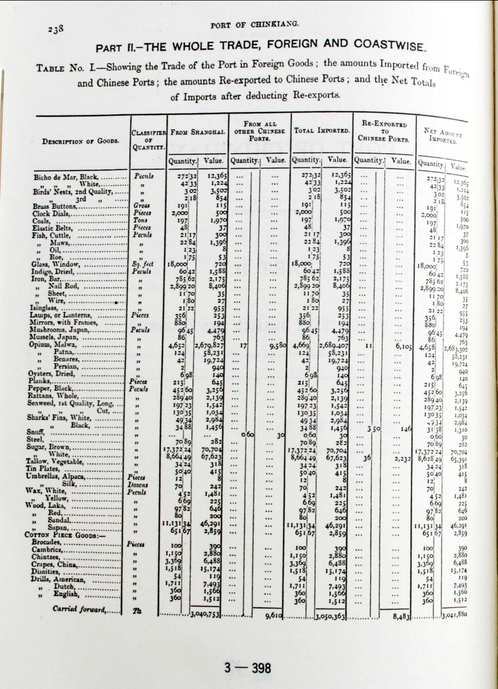 238
PORT OF CHINKIANG.
PART II.—THE WHOLE TRADE, FOREIGN AND COASTWISE.
TABLE No. I.—Showing the Trade of the Port in Foreign Goods; the amounts Imported from Foreign
and Chinese Ports; the amounts Re-exported to Chinese Ports; and the Net Totals
of Imports after deducting Re-exports.
DESCRIPTION OF GOODS. CLASSIFIER OF QUANTITY. FROM SHANGHAI. FROM ALL OTHER CHINESE PORTS. TOTAL IMPORTED. RE-EXPORTED TO CHINESE PORTS. NET AMOUNT IMPORTED.
Quantity. Value. Quantity. Value. Quantity. Value. Quantity. Value. Quantity. Value.
Bicho de Mar, Black, Piculs 272 32 12,365 ... ... 272 32 12,365 ... ... 272 32 12,365
„ „ White, „ 42 33 1,224 ... ... 42 33 1,224 ... ... 42 33 1,224
Birds' Nests, 2nd Quality, „ 3 02 3,502 ... ... 3 02 3,502 ... ... 3 02 3,502
„ 3rd „ „ 2 18 854 ... ... 2 18 854 ... ... 2 18 854
Brass Buttons, Gross 191 115 ... ... 191 115 ... ... 191 115
Clock Dials, Pieces 2,000 500 ... ... 2,000 500 ... ... 2,000 500
Coals, Tons 197 1,970 ... ... 197 1,970 ... ... 197 1,970
Elastic Belts, Pieces 48 37 ... ... 48 37 ... ... 48 37
Fish, Cuttle, Piculs 21 17 300 ... ... 21 17 300 ... ... 21 17 300
„ Maws, „ 22 84 1,396 ... ... 22 84 1,396 ... ... 22 84 1,396
„ Oil, „ 1 23 8 ... ... 1 23 8 ... ... 1 23 8
„ Roe, „ 1 75 53 ... ... 1 75 53 ... ... 1 75 53
Glass, Window, Sq. feet 18,000 720 ... ... 18,000 720 ... ... 18,000 720
Indigo, Dried, Piculs 60 42 1,588 ... ... 60 42 1,588 ... ... 60 42 1,588
Iron, Bar, „ 785 62 2,175 ... ... 785 62 2,175 ... ... 785 62 2,175
„ Nail Rod, „ 2,899 20 8,406 ... ... 2,899 20 8,406 ... ... 2,899 20 8,406
„ Sheet, „ 11 70 35 ... ... 11 70 35 ... ... 11 70 35
„ Wire, „ 1 80 27 ... ... 1 80 27 ... ... 1 80 27
Isinglass, „ 21 22 955 ... ... 21 22 955 ... ... 21 22 955
Lamps, or Lanterns, Pieces 356 253 ... ... 356 253 ... ... 356 253
Mirrors, with Frames, „ 880 194 ... ... 880 194 ... ... 880 194
Mushrooms, Japan, Piculs 96 45 4,479 ... ... 96 45 4,479 ... ... 96 45 4,479
Mussels, Japan, „ 86 763 ... ... 86 763 ... ... 86 763
Opium, Malwa, „ 4,652 2,679,827 17 9,580 4,669 2,689,407 11 6,105 4,658 2,683,302
„ Patna, „ 124 58,231 ... ... 124 58,231 ... ... 124 58,231
„ Benares, „ 42 19,724 ... ... 42 19,724 ... ... 42 19,724
„ Persian, „ 2 940 ... ... 2 940 ... ... 2 940
Oysters, Dried, „ 6 98 140 ... ... 6 98 140 ... ... 6 98 140
Planks, Pieces 215 645 ... ... 215 645 ... ... 215 645
Pepper, Black, Piculs 452 60 3,256 ... ... 452 60 3,256 ... ... 452 60 3,256
Rattans, Whole, „ 289 40 2,139 ... ... 289 40 2,139 ... ... 289 40 2,139
Seaweed, 1st Quality, Long, „ 197 23 1,542 ... ... 197 23 1,542 ... ... 197 23 1,542
„ „ Cut, „ 130 35 1,054 ... ... 130 35 1,054 ... ... 130 35 1,054
Sharks' Fins, White, „ 49 34 2,984 ... ... 49 34 2,984 ... ... 49 34 2,984
„ Black, „ 34 88 1,456 ... ... 34 88 1,456 3 50 146 31 38
Snuff, „ ... ... 0 60 30 0 60 30 ... ... 0 60 30
Steel, „ 70 89 282 ... ... 70 89 282 ... ... 70 89 282
Sugar, Brown, „ 17,372 24 70,704 ... ... 17,372 24 70,704 ... ... 17,372 24 70,704
„ White, „ 8,664 49 67,623 ... ... 8,664 49 67,623 36 2,232 8,628 49 65,391
Tallow, Vegetable, „ 34 24 318 ... ... 34 24 318 ... ... 34 24 318
Tin Plates, „ 50 40 415 ... ... 50 40 415 ... ... 50 40 415
Umbrellas, Alpaca, Pieces 12 8 ... ... 12 8 ... ... 12 8
„ Silk, Dozens 70 242 ... ... 70 242 ... ... 70 242
Wax, White, Piculs 4 52 1,481 ... ... 4 52 1,481 ... ... 4 52 1,481
„ Yellow, „ 6 69 225 ... ... 6 69 225 ... ... 6 69 225
Wood, Laka, „ 97 82 646 ... ... 97 82 646 ... ... 97 82 646
„ Red, „ 80 200 ... ... 80 200 ... ... 80 200
„ Sandal, „ 11,131 34 46,291 ... ... 11,131 34 46,291 ... ... 11,131 34 46,291
„ Sapan, „ 651 67 2,859 ... ... 651 67 2,859 ... ... 651 67 2,859
COTTON PIECE GOODS:—
Brocades, Pieces 100 390 ... ... 100 390 ... ... 100 390
Cambrics, „ 1,150 2,880 ... ... 1,150 2,880 ... ... 1,150 2,880
Chintzes, „ 3,369 6,488 ... ... 3,369 6,488 ... ... 3,369 6,488
Crapes, China, „ 1,518 15,174 ... ... 1,518 15,174 ... ... 1,518 15,174
Dimities, „ 54 119 ... ... 54 119 ... ... 54 119
Drills, American, „ 1,711 7,493 ... ... 1,711 7,493 ... ... 1,711 7,493
„ Dutch, „ 360 1,566 ... ... 360 1,566 ... ... 360 1,566
„ English, „ 360 1,512 ... ... 360 1,512 ... ... 360 1,512
Carried forward, Tls 3,040,753 9,610 3,050,363 8,483 3,041,880
3 — 398